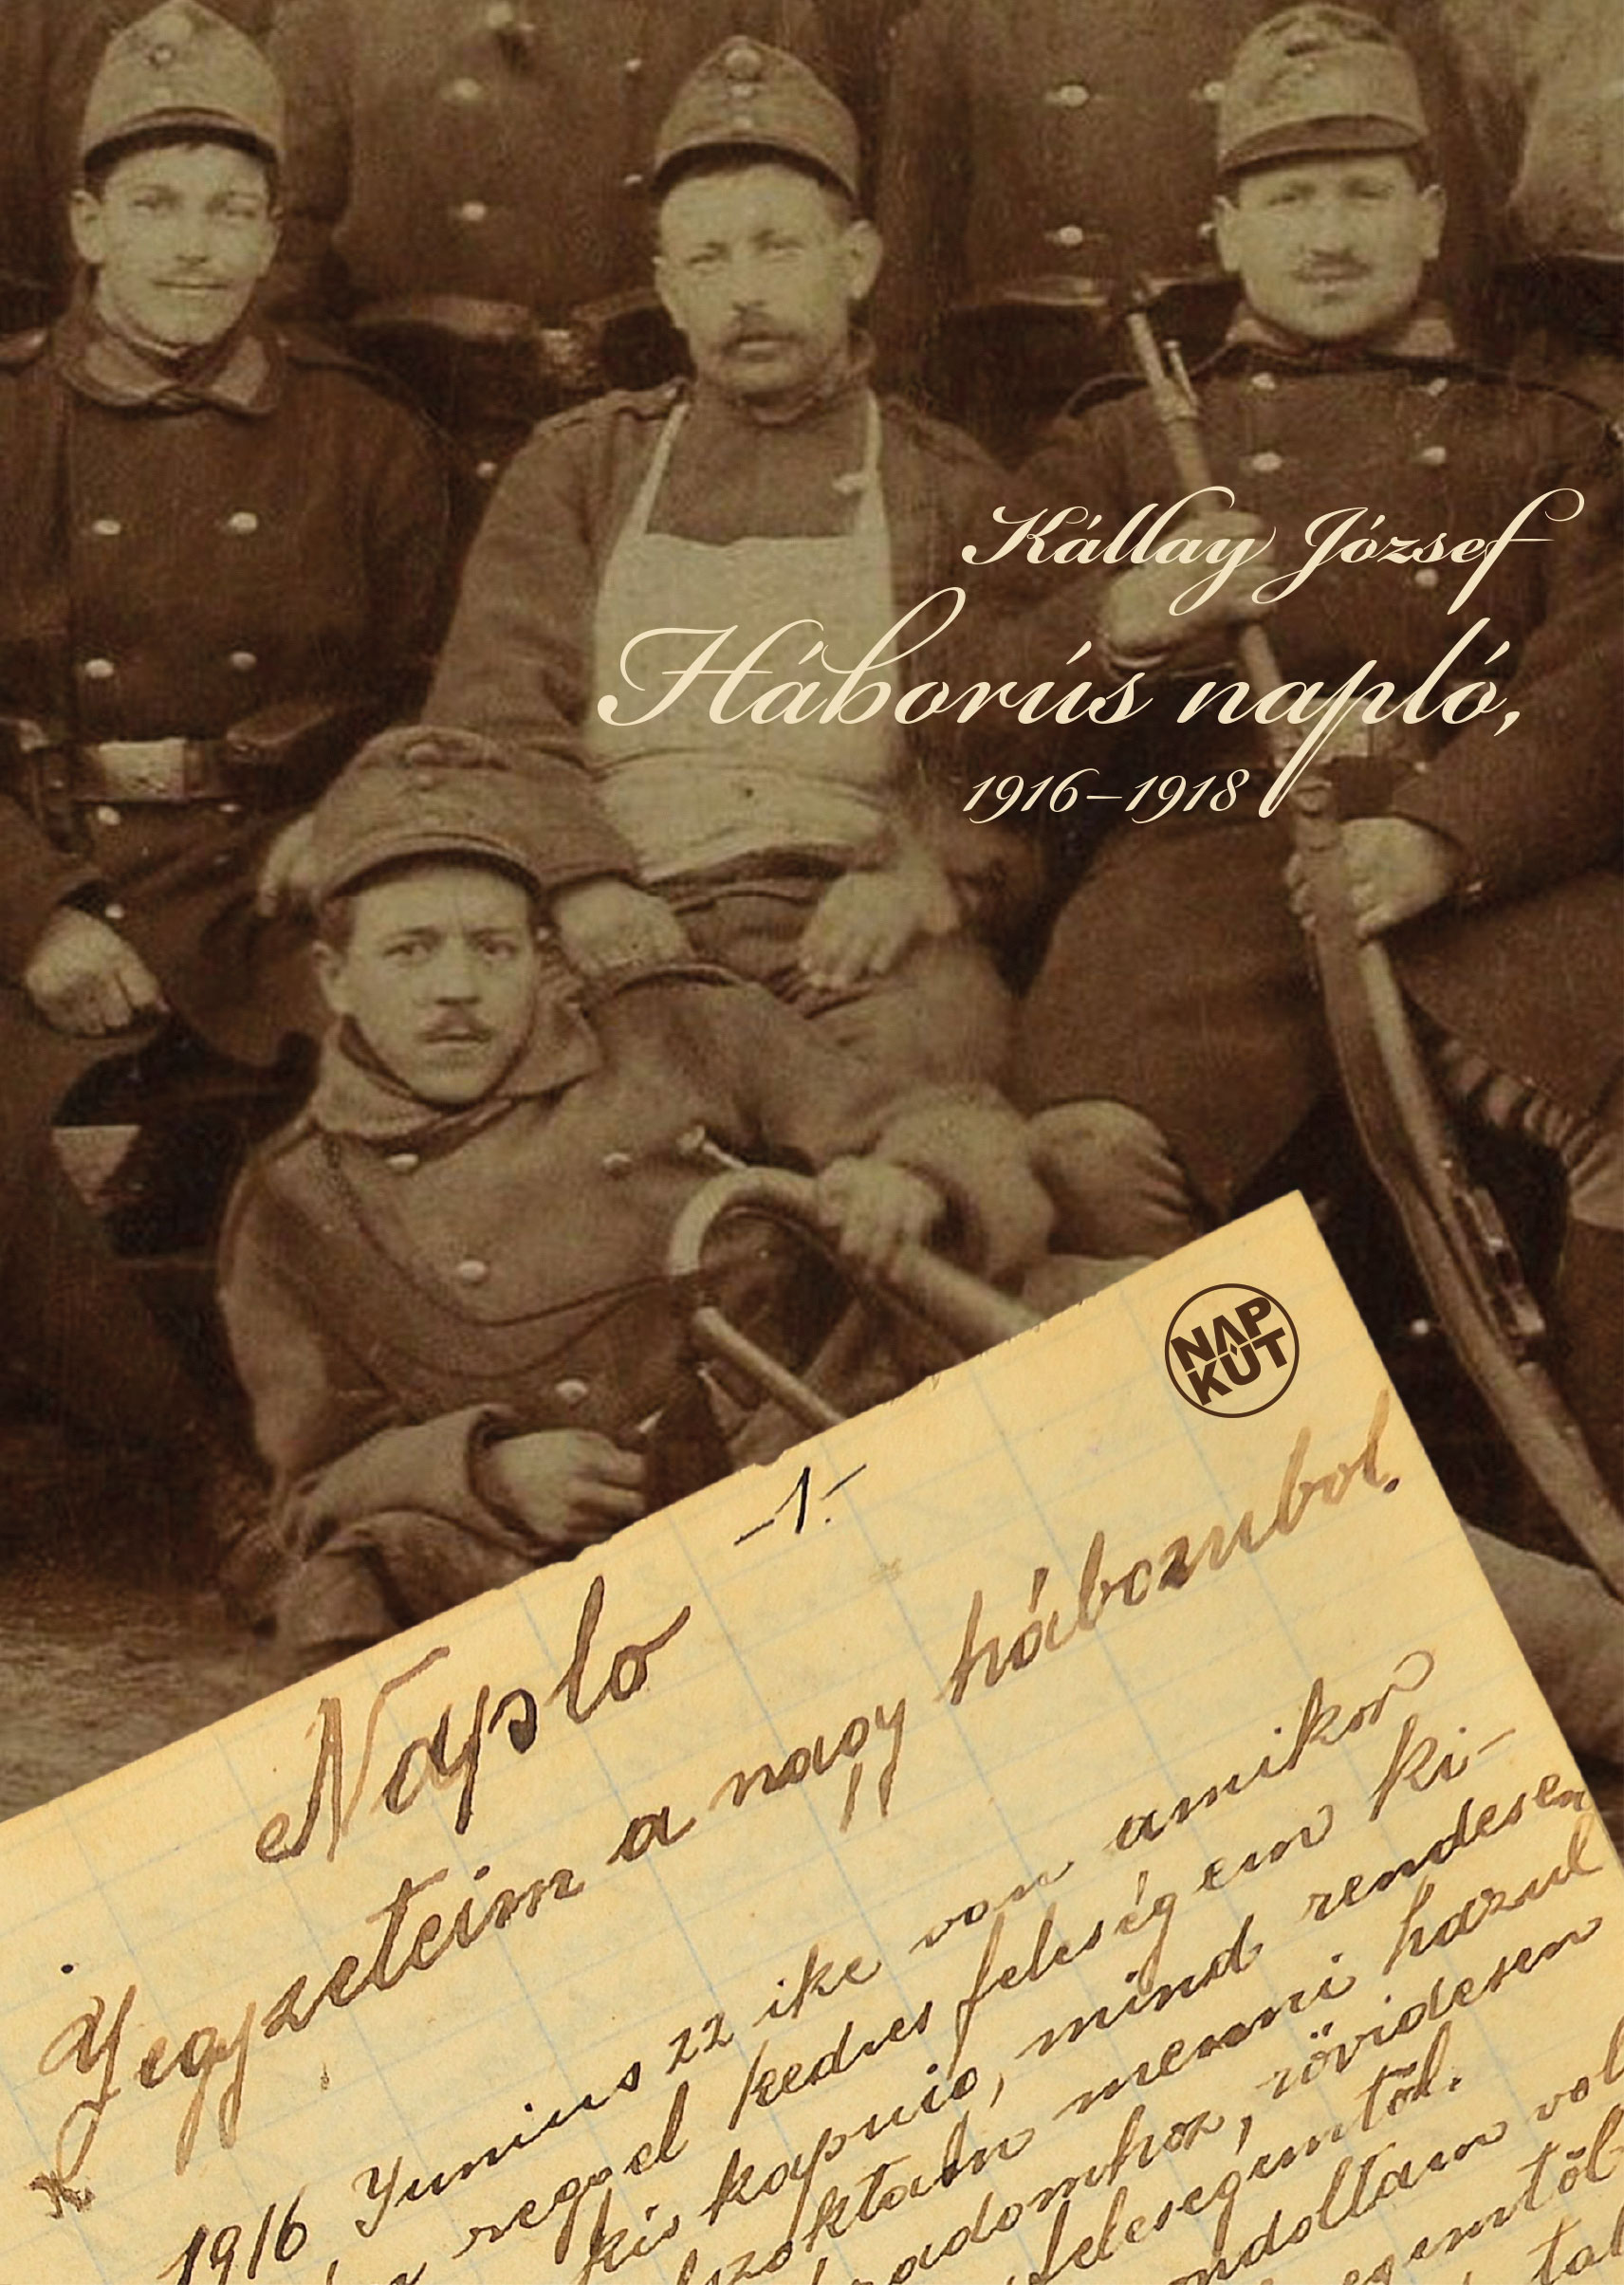 Kállay József
Háborús napló,
1916–1918
NAP
KÚT
-1.-
Naplo
Jegyzeteim a nagy háborubol.
1916 Junius 22 ike van amikor
reggel kedves feleségem ki-
kis kapuio, mind rendesen
szoktam menni hazul
rövidesen
feleségemtöl.
gondoltam vol